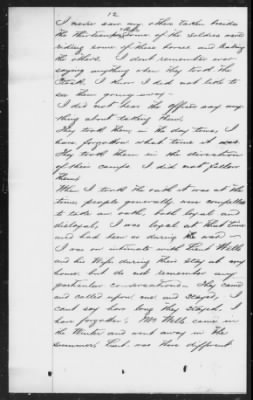 12
I never saw any other taken besides
the thirteen, some of the soldiers were
riding some of these horses and leading
the others. I don't remember ever
saying anything when they took the
stock. I know I did not like to
see them going away —
I did not hear the officer say any
thing about taking them.
They took them in the day time, I
have forgotten what time it was.
They took them in the direction
of their camps. I did not follow
them.
When I took the oath it was at the
time people generally were compelled
to take an oath, both loyal and
disloyal, I was loyal at that time
and had been so during the war —
I was on intimate with Lieut Wells
and his Wife during their stay at my
house but do not remember any
particular conversation. They came
and called upon me and stayed, I
cant say how long they stayed. I
have forgotten. Mrs Wells came in
the Winter and went away in the
summer. Lieut. was there different